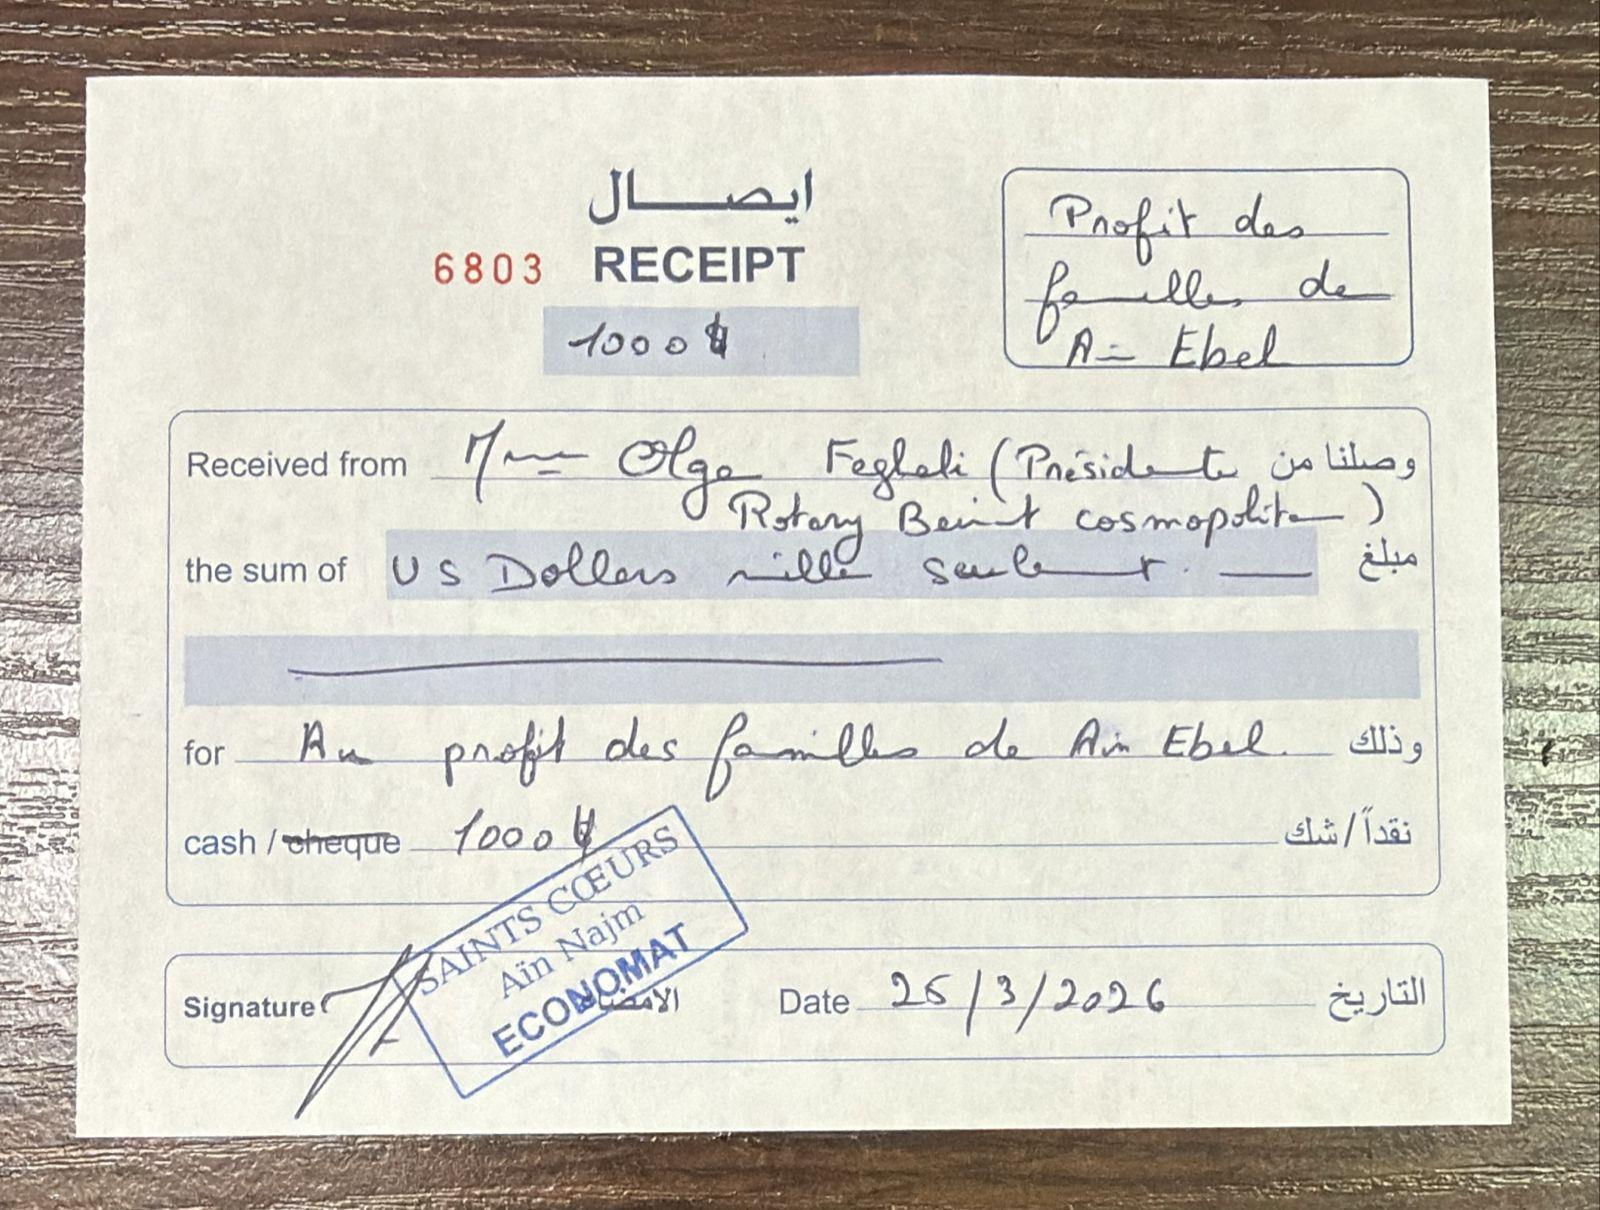 ايصال
6803 RECEIPT
1000$
Profit des
familles de
Ain Ebel
Received from Mme Olga Feghali (Présidente وصلنا من
Rotary Beirut cosmopolitan)
the sum of US Dollars mille seulement. مبلغ
for Au profit des familles de Ain Ebel. وذلك
cash / cheque 1000$ نقداً / شك
SAINTS CŒURS
Aïn Najm
ECONOMAT
Signature الامضاء
Date 25/3/2026 التاريخ